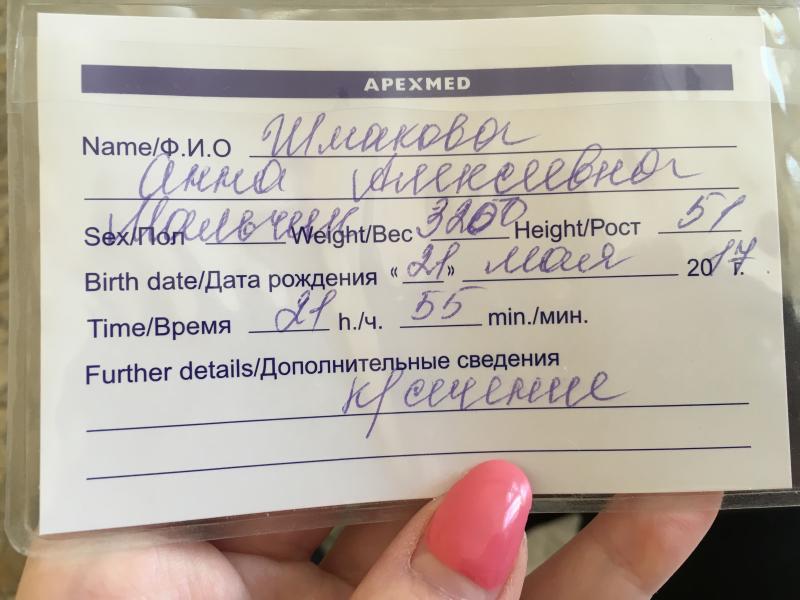 APEXMED
Name/Ф.И.О Шмакова
Анна Алексеевна
Sex/Пол Мальчик Weight/Вес 3200 Height/Рост 51
Birth date/Дата рождения «21» мая 2017 г.
Time/Время 21 h./ч. 55 min./мин.
Further details/Дополнительные сведения